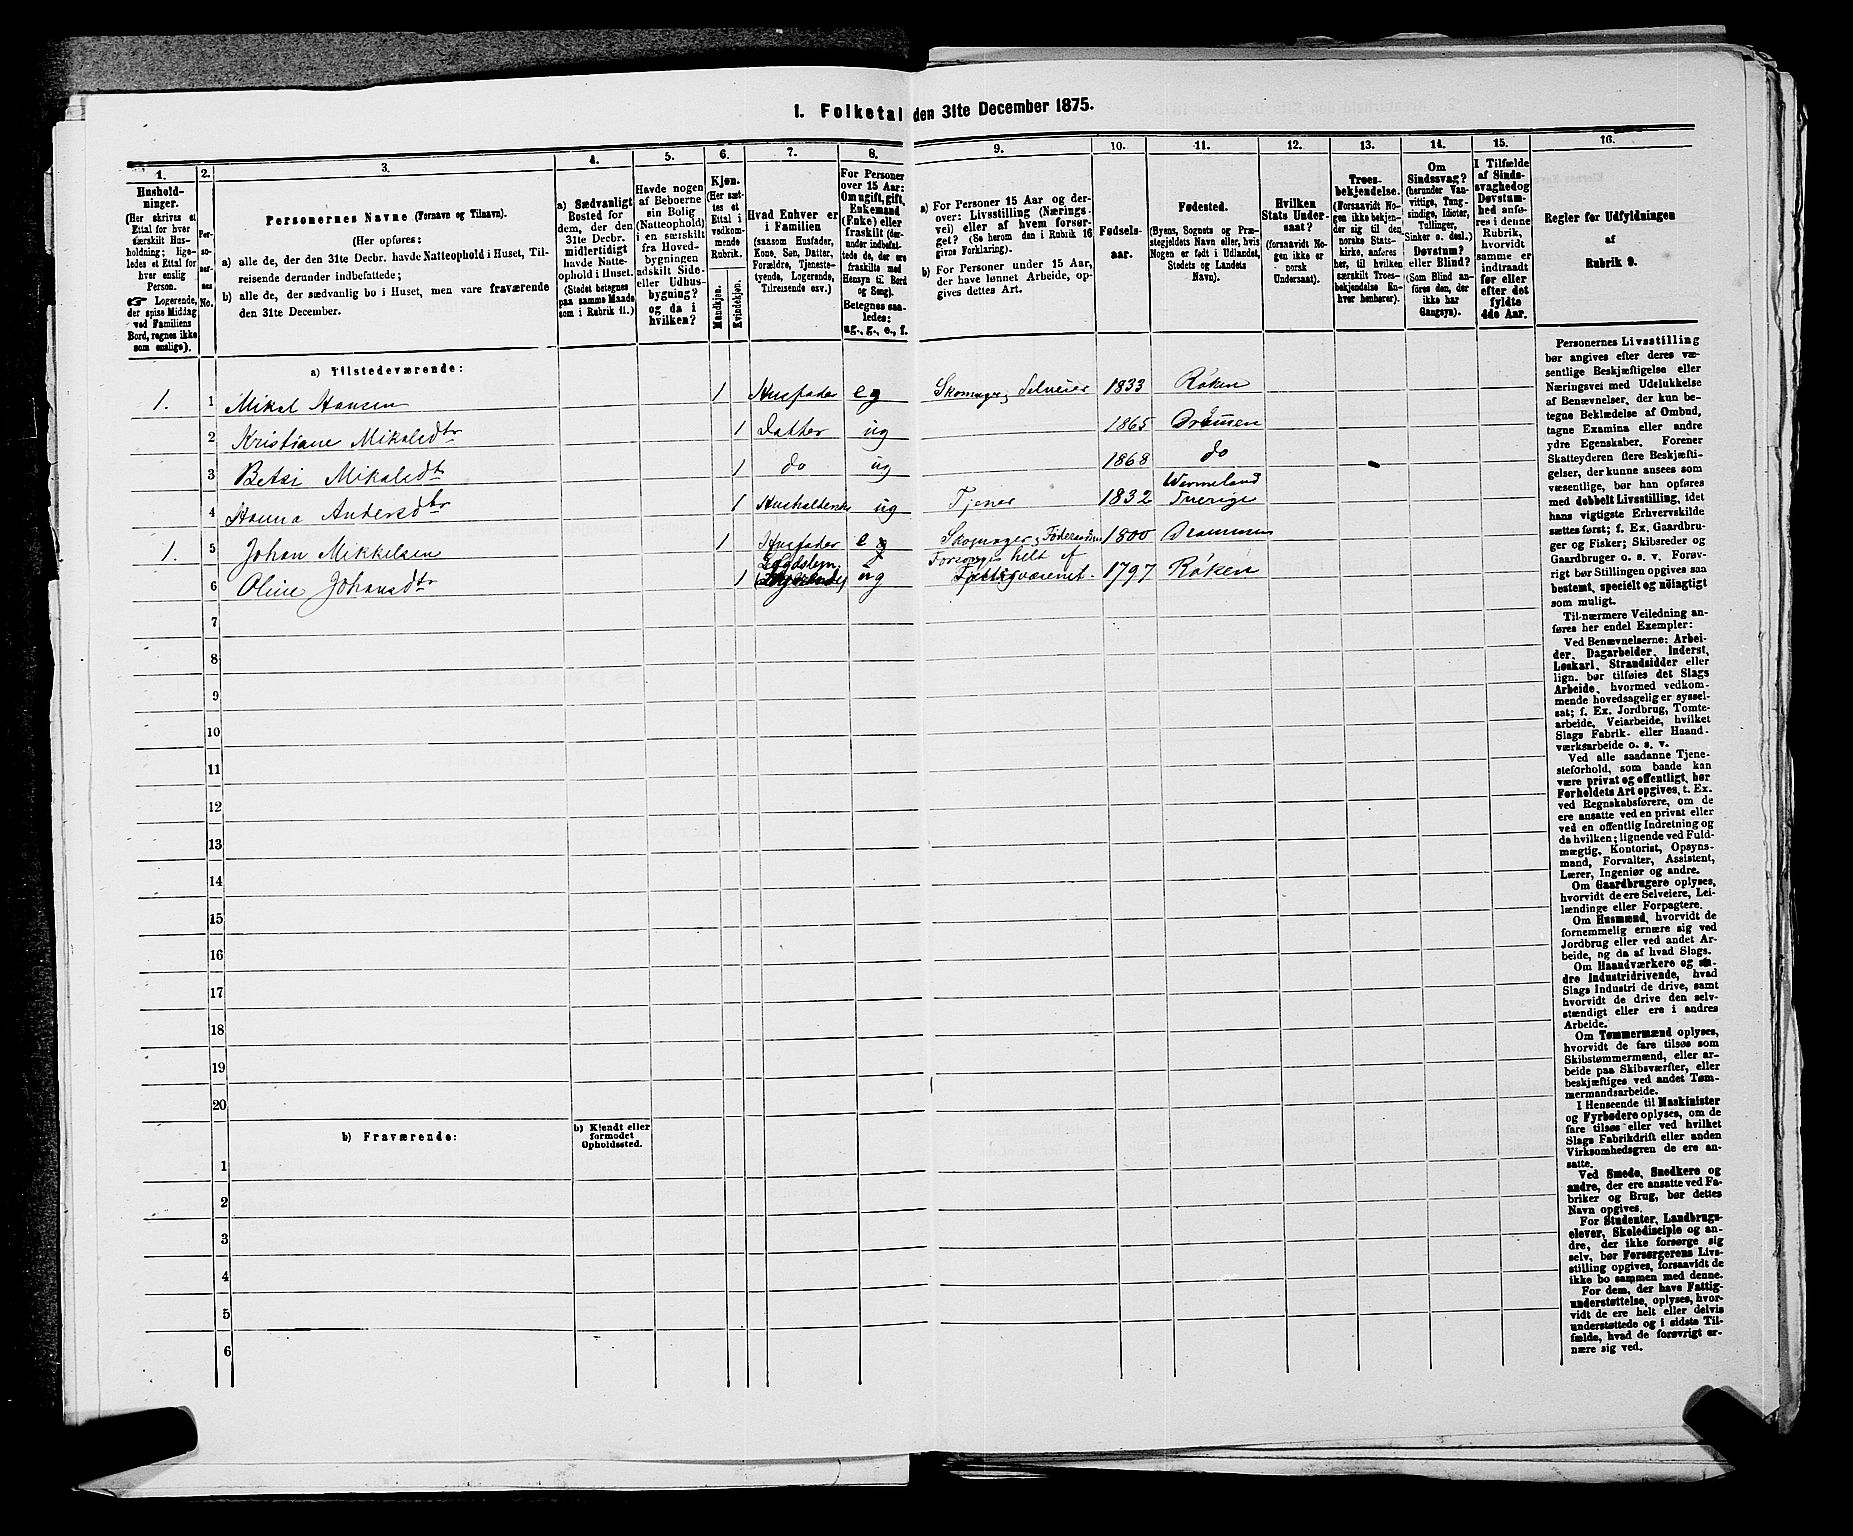 1. Folketal den 31te December 1875.
1.
Hushold-
ninger.
(Her skrives et
Ettal for hver
særskilt Hus-
holdning; lige-
ledes et Ettal for
hver enslig
Person.
☞ Logerende,
der spise Middag
ved Familiens
Bord, regnes ikke
som enslige).
2.
Per-
so-
ner-
nes
No.
3.
Personernes Navne (Fornavn og Tilnavn).
(Her opføres:
a) alle de, der den 31te Decbr. havde Natteophold i Huset, Til-
reisende derunder indbefattede;
b) alle de, der sædvanlig bo i Huset, men vare fraværende
den 31te December.
4.
a) Sædvanligt
Bosted for
dem, der den
31te Decbr.
midlertidigt
havde Natte-
ophold i Huset.
(Stedet betegnes
paa samme Maade
som i Rubrik 11.)
5.
Havde nogen
af Beboerne
sin Bolig
(Natteophold)
i en særskilt
fra Hoved-
bygningen
adskilt Side-
eller Udhus-
bygning?
og da i
hvilken?
6.
Kjøn.
(Her sæt-
tes et
Ettal i
vedkom-
mende
Rubrik.
Mandkjøn.
Kvindekjøn.
7.
Hvad Enhver er
i Familien
(saasom Husfader,
Kone, Søn, Datter,
Forældre, Tjeneste-
tyende, Logerende,
Tilreisende osv.)
8.
For Personer
over 15 Aar:
Om ugift, gift,
Enkemand
(Enke) eller
fraskilt (der-
under indbefat-
tede de, der ere
fraskilte med
Hensyn til Bord
og Seng).
Betegnes saa-
ledes:
ug., g., e., f.
9.
a) For Personer 15 Aar og der-
over: Livsstilling (Nærings-
vei) eller af hvem forsør-
get? (Se herom dan i Rubrik 16
givne Forklaring).
b) For Personer under 15 Aar,
der have lønnet Arbeide, op-
gives dettes Art.
10.
Fødsels-
aar.
11.
Fødested.
(Byens, Sognets og Præ-
stegjeldets Navn eller, hvis
Nogen er født i Udlandet,
Stedets og Landets
Navn).
12.
Hvilken
Stats Under-
saat?
(forsaavidt No-
gen ikke er
norsk
Undersaat).
13.
Troes-
bekjendelse.
(Forsaavidt No-
gen ikke bekjen-
der sig til den
norske Stats-
kirke, anføres
her, til hvilken
særskilt Troes-
bekjendelse En-
hver henhører).
14.
Om
Sindssvag?
(herunder Van-
vittige, Tung-
sindige, Idioter,
Tullinger,
Sinker o. desl.)
Døvstum?
eller Blind?
(Som Blind an-
føres den, der
ikke har
Gangsyn).
15.
I Tilfælde
af Sinds-
svaghed og
Døvstum-
hed anfø-
res i denne
Rubrik,
hvorvidt
samme er
indtraadt
før eller
efter det
fyldte
4de Aar.
16.
Regler for Udfyldningen
af
Rubrik 9.
a) Tilstedeværende:
1. 1 Mikal Hansen 1 Husfader eg Skomager, Selveier 1833 Røken
2 Kristiane Mikalsdtr 1 Datter ug 1865 Drammen
3 Betsi Mikalsdtr 1 do ug 1868 do
4 Hanna Andersdtr 1 Husholderske ug Tjener 1832 Wermeland Sverige
1. 5 Johan Mikkelsen 1 Husfader e Skomager, Føderaadsm 1800 Drammen
6 Oline Johansdtr 1 Lægdslem ug Forsørges helt af Fattigvæsenet. 1797 Røken
7
8
9
10
11
12
13
14
15
16
17
18
19
20
b) Fraværende:
b) Kjendt eller
formodet
Opholdssted.
1
2
3
4
5
6
Personernes Livsstilling
bør angives efter deres væ-
sentlige Beskjæftigelse eller
Næringsvei med Udelukkelse
af Benævnelser, der kun be-
tegne Beklædelse af Ombud,
tagne Examina eller andre
ydre Egenskaber. Forener
Skatteyderen flere Beskjæfti-
gelser, der kunne ansees som
væsentlige, bør han opføres
med dobbelt Livsstilling, idet
hans vigtigste Erhvervskilde
sættes først; f. Ex. Gaardbru-
ger og Fisker; Skibsreder og
Gaardbruger o. s. v. Forøv-
rigt bør Stillingen opgives saa
bestemt, specielt og nøiagtigt
som muligt.
Til nærmere Veiledning an-
føres her endel Exempler:
Ved Benævnelserne: Arbei-
der, Dagarbeider, Inderst,
Løskarl, Strandsidder eller
lign. bør tilføies det Slags
Arbeide, hvormed vedkom-
mende hovedsagelig er syssel-
sat; f. Ex. Jordbrug, Tomte-
arbeide, Veiarbeide, hvilket
Slags Fabrik- eller Haand-
værksarbeide o. s. v.
Ved alle saadanne Tjene-
steforhold, som baade kan
være privat og offentligt, bør
Forholdets Art opgives, t. Ex.
ved Regnskabsførere, om de
ere ansatte ved en privat eller
ved en offentlig Indretning og
da hvilken; lignende ved Fuld-
mægtig, Kontorist, Opsyns-
mand, Forvalter, Assistent,
Lærer, Ingeniør og andre.
Om Gaardbrugere oplyses,
hvorvidt de ere Selveiere, Lei-
lændinge eller Forpagtere.
Om Husmænd, hvorvidt de
fornemmelig ernære sig ved
Jordbrug eller ved andet Ar-
beide, og da af hvad Slags.
Om Haandværkere og an-
dre Industridrivende, hvad
Slags Industri de drive, samt
hvorvidt de drive den selv-
stændigt eller ere i andres
Arbeide.
Om Tømmermænd oplyses,
hvorvidt de fare tilsøs som
Skibstømmermænd, eller ar-
beide paa Skibsværfter, eller
beskjæftiges ved andet Tøm-
mermandsarbeide.
I Henseende til Maskinister
og Fyrbødere oplyses, om de
fare tilsøs eller ved hvilket
Slags Fabrikdrift eller anden
Virksomhedsgren de ere an-
satte.
Ved Smede, Snedkere og
andre, der ere ansatte ved Fa-
briker og Brug, bør dettes
Navn opgives.
For Studenter, Landbrugs-
elever, Skoledisciple og an-
dre, der ikke forsørge sig
selv, bør Forsørgerens Livs-
stilling opgives, forsaavidt de
ikke bo sammen med denne.
For dem, der have Fattig-
understøttelse, oplyses, hvor-
vidt de ere helt eller delvis
understøttede og i sidste Til-
fælde, hvad de forøvrigt er-
nære sig ved.